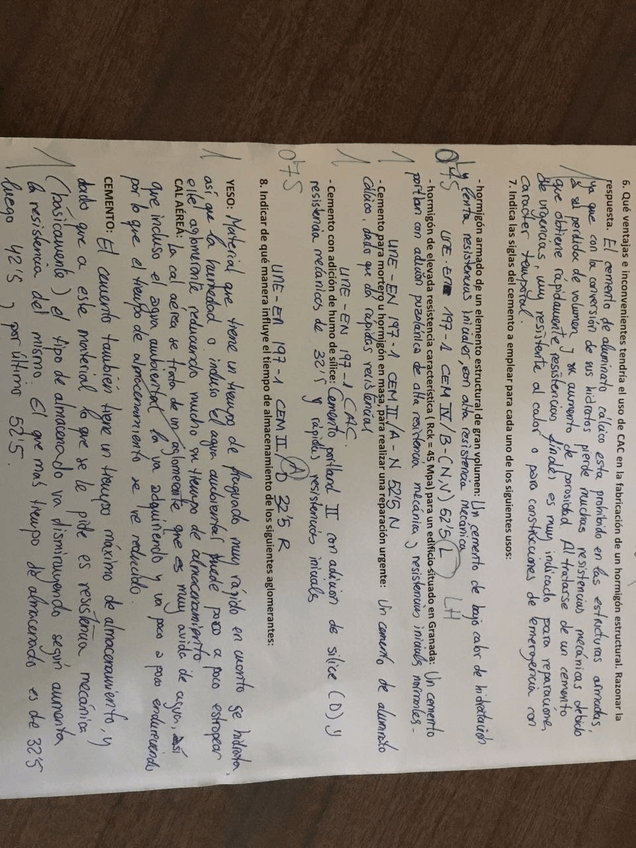 6. Qué ventajas e inconvenientes tendría el uso de CAC en la fabricación de un hormigón estructural. Razonar la
respuesta. El cemento de aluminato cálcico esta prohibido en las estructuras armadas,
ya que con la conversión de sus hidratos pierde muchas resistencias mecánicas debido
a su perdida de volumen y su aumento de porosidad. Al tratarse de un cemento
que obtiene rapidamente resistencias finales es muy indicado para reparaciones
de urgencias, muy resistente al calor o para construcciones de emergencia con
1
caracter temporal.
7. Indica las siglas del cemento a emplear para cada uno de los siguientes usos:
- hormigón armado de un elemento estructural de gran volumen: Un cemento de bajo calor de hidratación
y lenta resistencias iniciales, con alta resistencia mecánica
0'75 UNE-EN 197-1 CEM IV/B-(N,V) 52'5 L LH
- hormigón de elevada resistencia característica (Rck = 45 Mpa) para un edificio situado en Granada: Un cemento
portlan con adición puzolánica de alta resistencia mecánica y resistencias iniciales normales.
1 UNE-EN 197-1 CEM II/A-N 52'5 N
- Cemento para mortero u hormigón en masa, para realizar una reparación urgente: Un cemento de aluminato
cálcico dado que da rápidas resistencias
1 UNE-EN 197-1 CAC
- Cemento con adición de humo de sílice: Cemento portland II con adición de sílice (D) y
resistencia mecánicas de 32'5 y rápidas resistencias iniciales
0'75 UNE-EN 197-1 CEM II/A D 32'5 R
8. Indicar de qué manera influye el tiempo de almacenamiento de los siguientes aglomerantes:
YESO: Material que tiene un tiempo de fraguado muy rápido en cuanto se hidrata,
1 así que la humedad o incluso el agua ambiental puede poco a poco estropear
este aglomerante reduciendo mucho su tiempo de almacenamiento.
CAL AÉREA: La cal aérea se trata de un aglomerante que es muy avido de agua, así
que incluso el agua ambiental la va adquiriendo y va poco a poco endureciendo
por lo que el tiempo de almacenamiento se ve reducido.
CEMENTO: El cemento también tiene un tiempo máximo de almacenamiento, y
dado que a este material lo que se le pide es resistencia mecánica
(básicamente) el tipo de almacenado va disminuyendo según aumenta
1 la resistencia del mismo. El que mas tiempo de almacenado es de 32'5
luego 42'5 y por último 52'5.